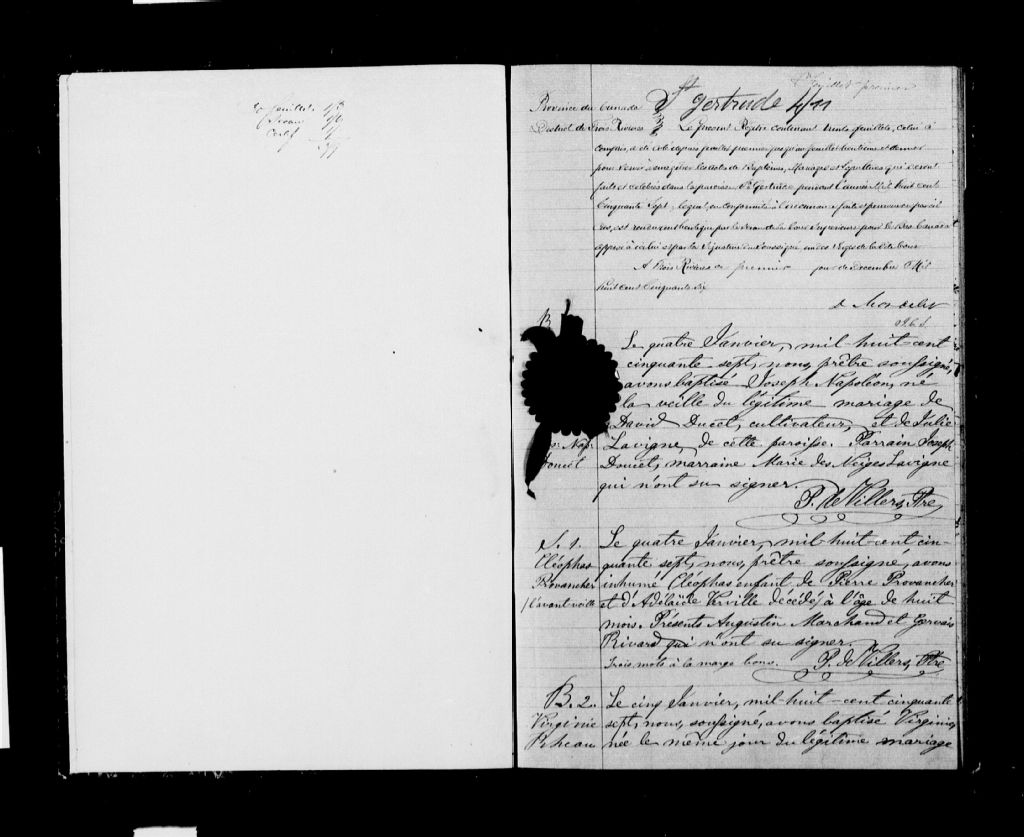 30 feuillets 1/3
Certif
Feuillet premier
Province du Canada
St Gertrude
District de Trois Rivières
Le présent Régistre contenant trente feuillets, celui-ci
compris, a été coté depuis feuillet premier jusqu'au feuillet trentième et dernier
pour servir à enregistrer les actes de Baptêmes, Mariages et Sépultures qui seront
faits et célébrés dans la paroisse Ste Gertrude pendant l'année Mil huit cent
Cinquante Sept, lequel, en conformité à
est rendu authentique par le Sceau de la Cour Supérieure pour le Bas Canada
apposé à celui et par la Signature du Soussigné un des Juges de la dite Cour
A Trois Rivières ce premier jour de Décembre Mil
huit cent cinquante six
J.C.S.
B.
Le quatre Janvier, mil-huit-cent
cinquante-sept, nous, prêtre soussigné,
avons baptisé Joseph Napoléon, né
la veille du légitime mariage de
David Ducet, cultivateur, et de Julie
Nap:
Doucet
Lavigne, de cette paroisse. Parrain Joseph
Doucet, marraine Marie des Neiges Lavigne
qui n'ont su signer.
P. de Villers, Ptre
S. 1.
Cléophas
Provancher
/ l'avant veille
Le quatre Janvier, mil-huit-cent cin-
quante sept, nous, prêtre soussigné, avons
inhumé Cléophas enfant de Pierre Provancher
et d'Adélaïde Verville décédé / à l'âge de huit
mois. Présents Augustin Marchand et Gervais
Rivard qui n'ont su signer.
Trois mots à la marge bons. P. de Villers, Ptre
B. 2.
Virginie
Pcheau
Le cinq Janvier, mil-huit-cent cinquante
sept, nous, soussigné, avons baptisé Virginie,
née le même jour du légitime mariage